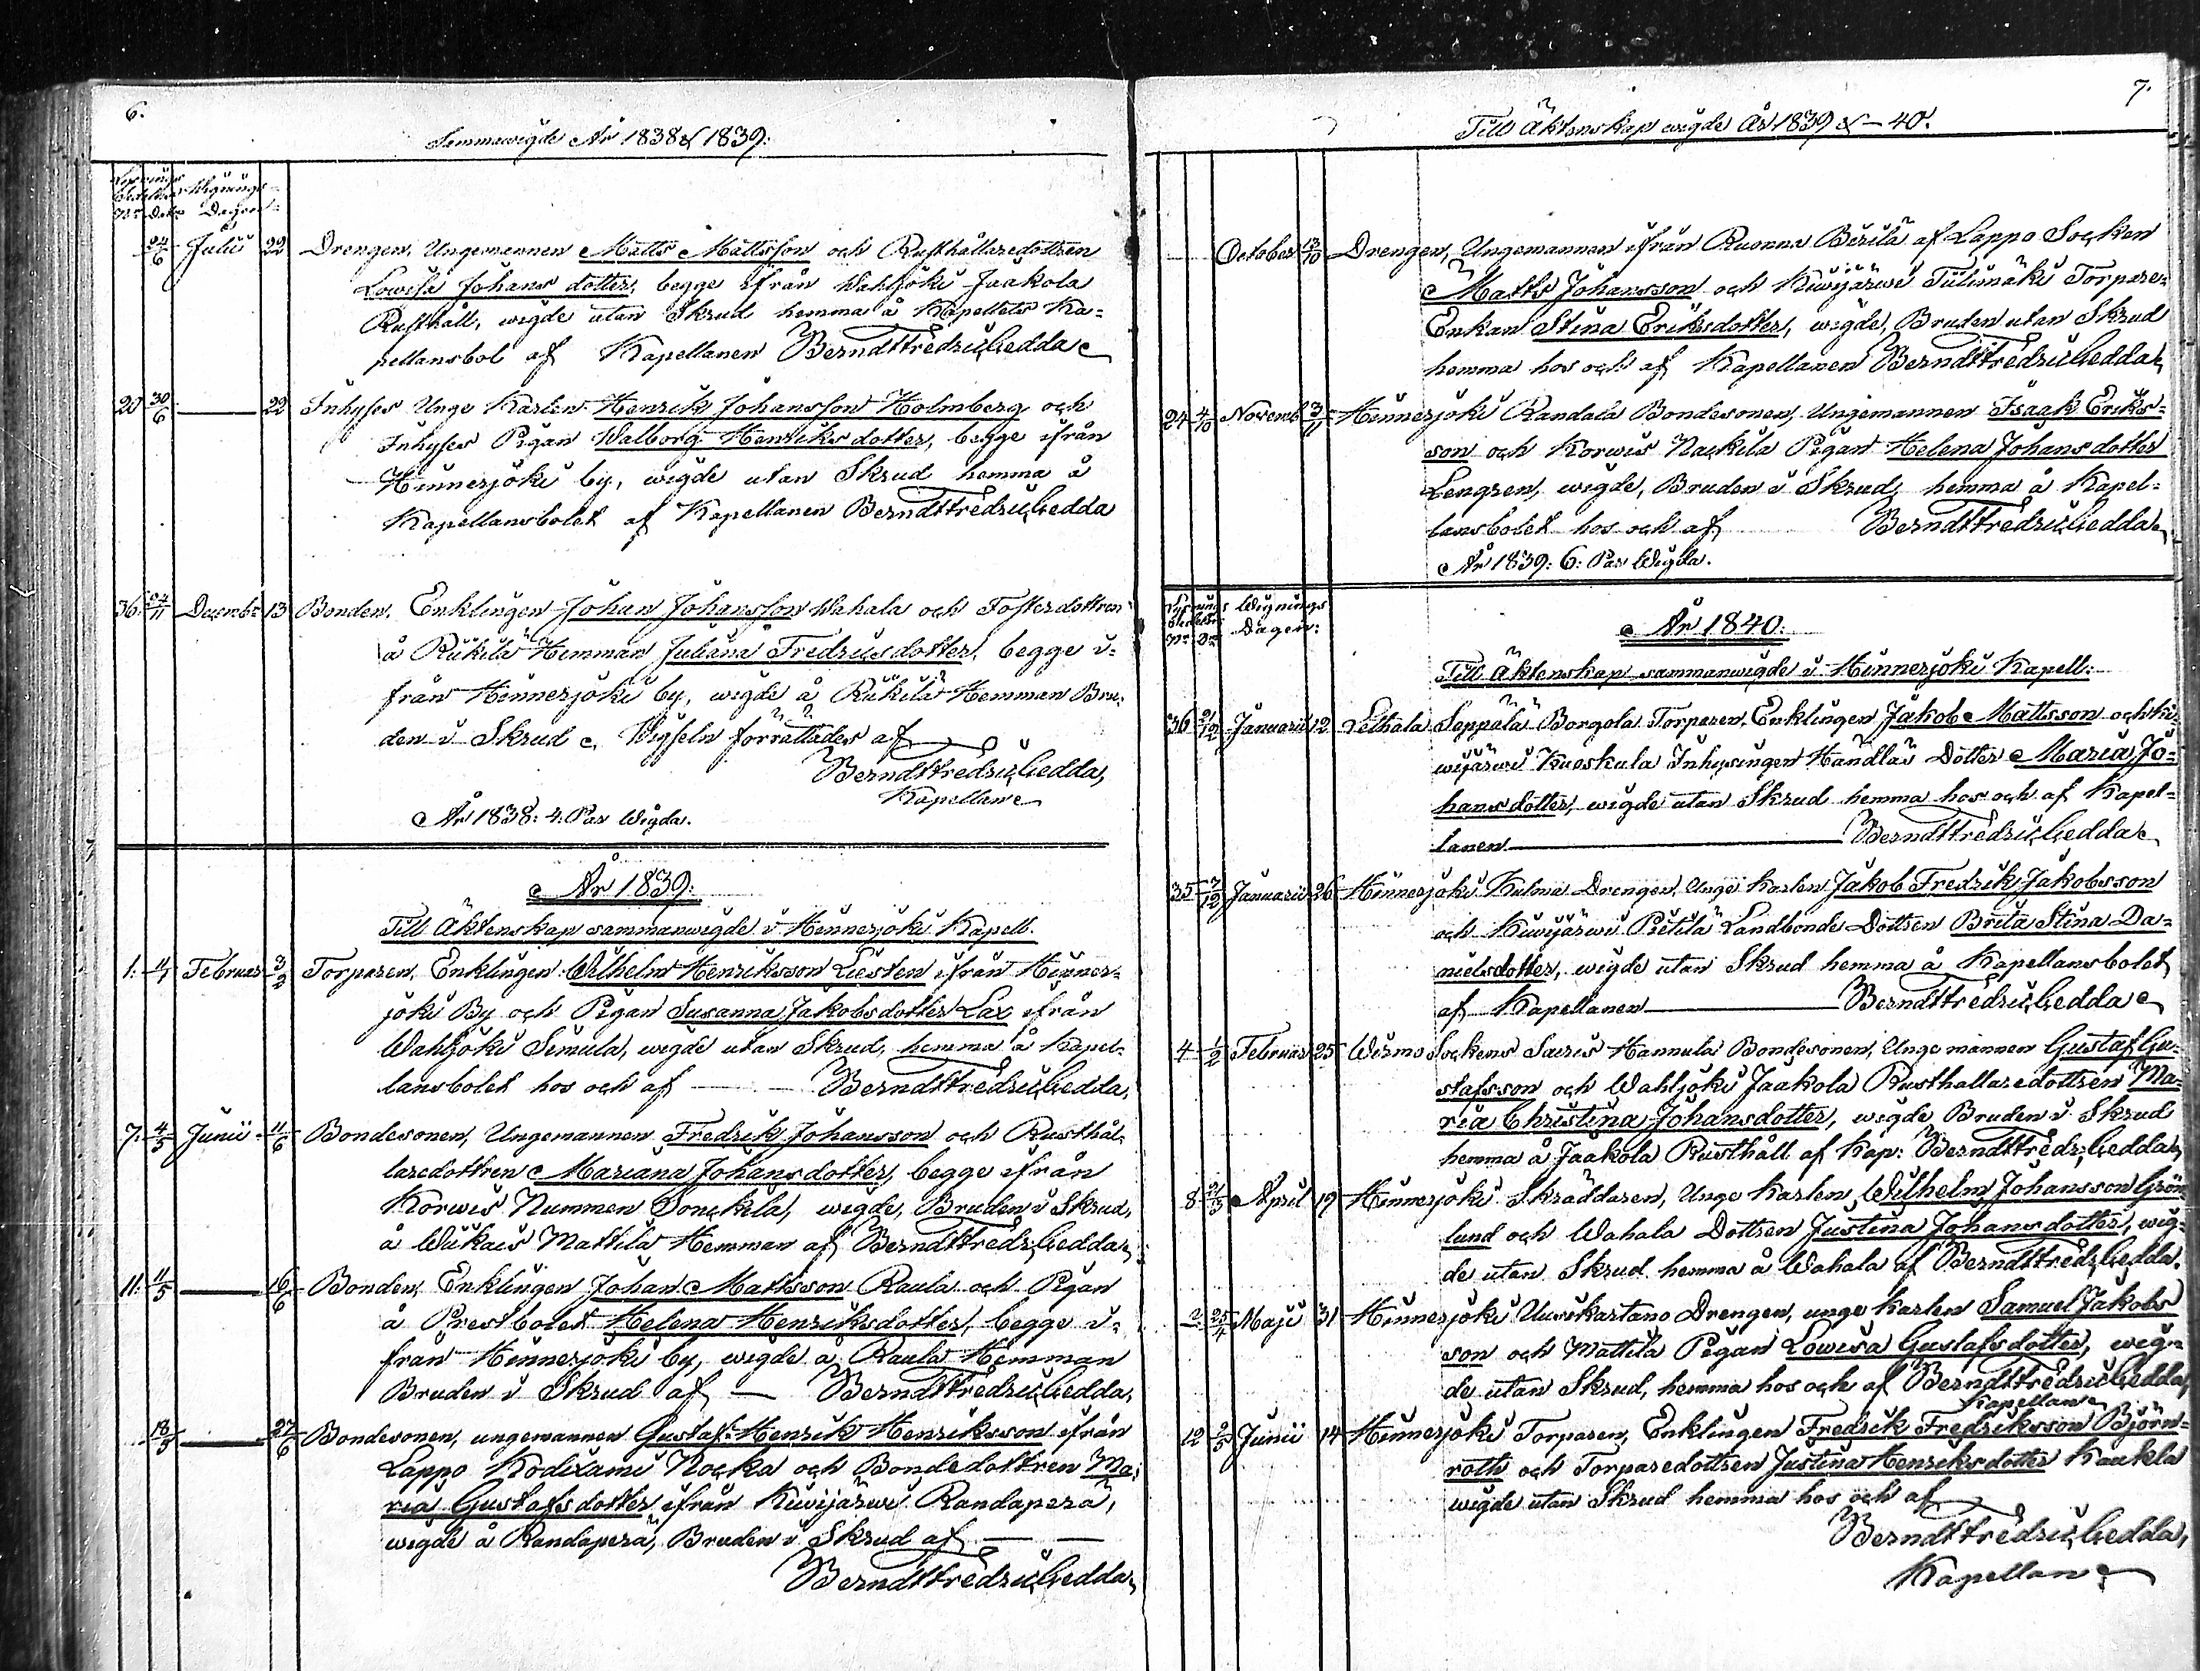 6.
Sammanvigde År 1838 & 1839.
Lysnings- Wignings-
No Dato Dagen
24/6 Julii 22 Drengen, Ungemannen Matts Mattsson och Rusthållaredottren
Lowisa Johans dotter, begge ifrån Wahljoki Jaakola
Rusthåll, wigde utan Skrud hemma å Kapellets Ka-
pellansbol af Kapellanen Berndt Fredric Gedda
20 30/6 — 22 Inhyses Unge Karlen Henrik Johansson Holmberg och
Inhyses Pigan Walborg Henriks dotter, begge ifrån
Hinnerjoki by, wigde utan Skrud hemma å
Kapellansbolet af Kapellanen Berndt Fredric Gedda
36. 24/11 Decembr 13 Bonden, Enklingen Johan Johansson Wahala och Fosterdottren
å Rükilä Hemman Juliana Fredricsdotter, begge i-
från Hinnerjoki by, wigde å Rükilä Hemman Bru-
den i Skrud. Wigseln förrättades af
Berndt Fredric Gedda,
Kapellan
År 1838: 4: Par Wigda.
År 1839:
Till Äktenskap sammanwigde i Hinnerjoki Kapell.
1. 4/1 Februar 3/2 Torparen, Enklingen Wilhelm Henriksson Liesten ifrån Hinner-
joki By och Pigan Susanna Jakobsdotter Lax ifrån
Wahljoki Simula, wigde utan Skrud, hemma å Kapel-
lansbolet hos och af — Berndt Fredric Gedda,
7. 4/5 Junii 11/6 Bondesonen, Ungemannen Fredrik Johansson och Rusthål-
laredottren Mariana Johansdotter, begge ifrån
Korwis Nummen Sonckila, wigde, Bruden i Skrud,
å Wükais Mattila Hemman af Berndt Fredr. Gedda
11. 11/5 — 16/6 Bonden, Enklingen Johan Mattsson Raula och Pigan
å Prestbolet Helena Henriksdotter, begge i-
från Hinnerjoki by, wigde å Raula Hemman
Bruden i Skrud af — Berndt Fredric Gedda,
18/5 — 27/6 Bondesonen, ungemannen Gustaf Henrik Henriksson ifrån
Lappo Kodixami Nocka och Bondedottren Ma-
ria Gustafs dotter ifrån Kiwijärwi Randaperä,
wigde å Randaperä, Bruden i Skrud af — —
Berndt Fredric Gedda
7.
Till Äktenskap wigde År 1839 & — 40.
October 13/10 Drengen, Ungemannen ifrån Ruonna Berilä af Lappo Socken
Matts Johansson och Kiwijärwi Tülimäki Torpare-
Enkan Stina Eriksdotter, wigde, Bruden utan Skrud
hemma hos och af Kapellanen Berndt Fredric Gedda
24 4/10 Novemb 3/11 Hinnerjoki Randala Bondesonen, Ungemannen Isaak Eriks-
son och Korwis Nackila Pigan Helena Johans dotter
Lengren, wigde, Bruden i Skrud, hemma å Kapel-
lansbolet hos och af Berndt Fredric Gedda
År 1839: 6: Par Wigda.
Lysnings Wignings
No Do Dagen:
År 1840:
Till Äktenskap sammanwigde i Hinnerjoki Kapell:
36 21/12 Januarii 12 Lellala Seppälä Borgola Torparen, Enklingen Jakob Mattsson och Ki-
wijärwi Kuoskula Inhysingen Handläs Dotter Maria Jo-
hans dotter, wigde utan Skrud hemma hos och af Kapel-
lanen — Berndt Fredric Gedda
35 7/12 Januarii 26 Hinnerjoki Kulma Drengen, Unge Karlen Jakob Fredrik Jakobsson
och Kiwijärwi Pietilä Landbonde Dottren Brita Stina Da-
nielsdotter, wigde utan Skrud hemma å Kapellansbolet
af Kapellanen — Berndt Fredric Gedda
4 1/2 Februar 25 Wirmo Sockens Saeris Hannula Bondesonen, Unge mannen Gustaf Gu-
stafsson och Wahljoki Jaakola Rusthållaredottren Ma-
ria Christina Johansdotter, wigde, Bruden i Skrud
hemma å Jaakola Rusthåll af Kap: Berndt Fredr. Gedda
8 21/3 April 19 Hinnerjoki Skräddaren, Unge Karlen Wilhelm Johansson Grön-
lund och Wahala Dottren Justina Johansdotter, wig-
de utan Skrud hemma å Wahala af Berndt Fredr. Gedda.
2 25/4 Maji 31 Hinnerjoki Uusikartano Drengen, unge karlen Samuel Jakobs
son och Mattila Pigan Lowisa Gustafsdotter, wig-
de utan Skrud, hemma hos och af Berndt Fredric Gedda,
Kapellan
12 2/5 Junii 14 Hinnerjoki Torparen, Enklingen Fredrik Fredriksson Björn-
roth och Torparedottren Justina Henriksdotter Kaukla
wigde utan Skrud hemma hos och af
Berndt Fredric Gedda,
Kapellan